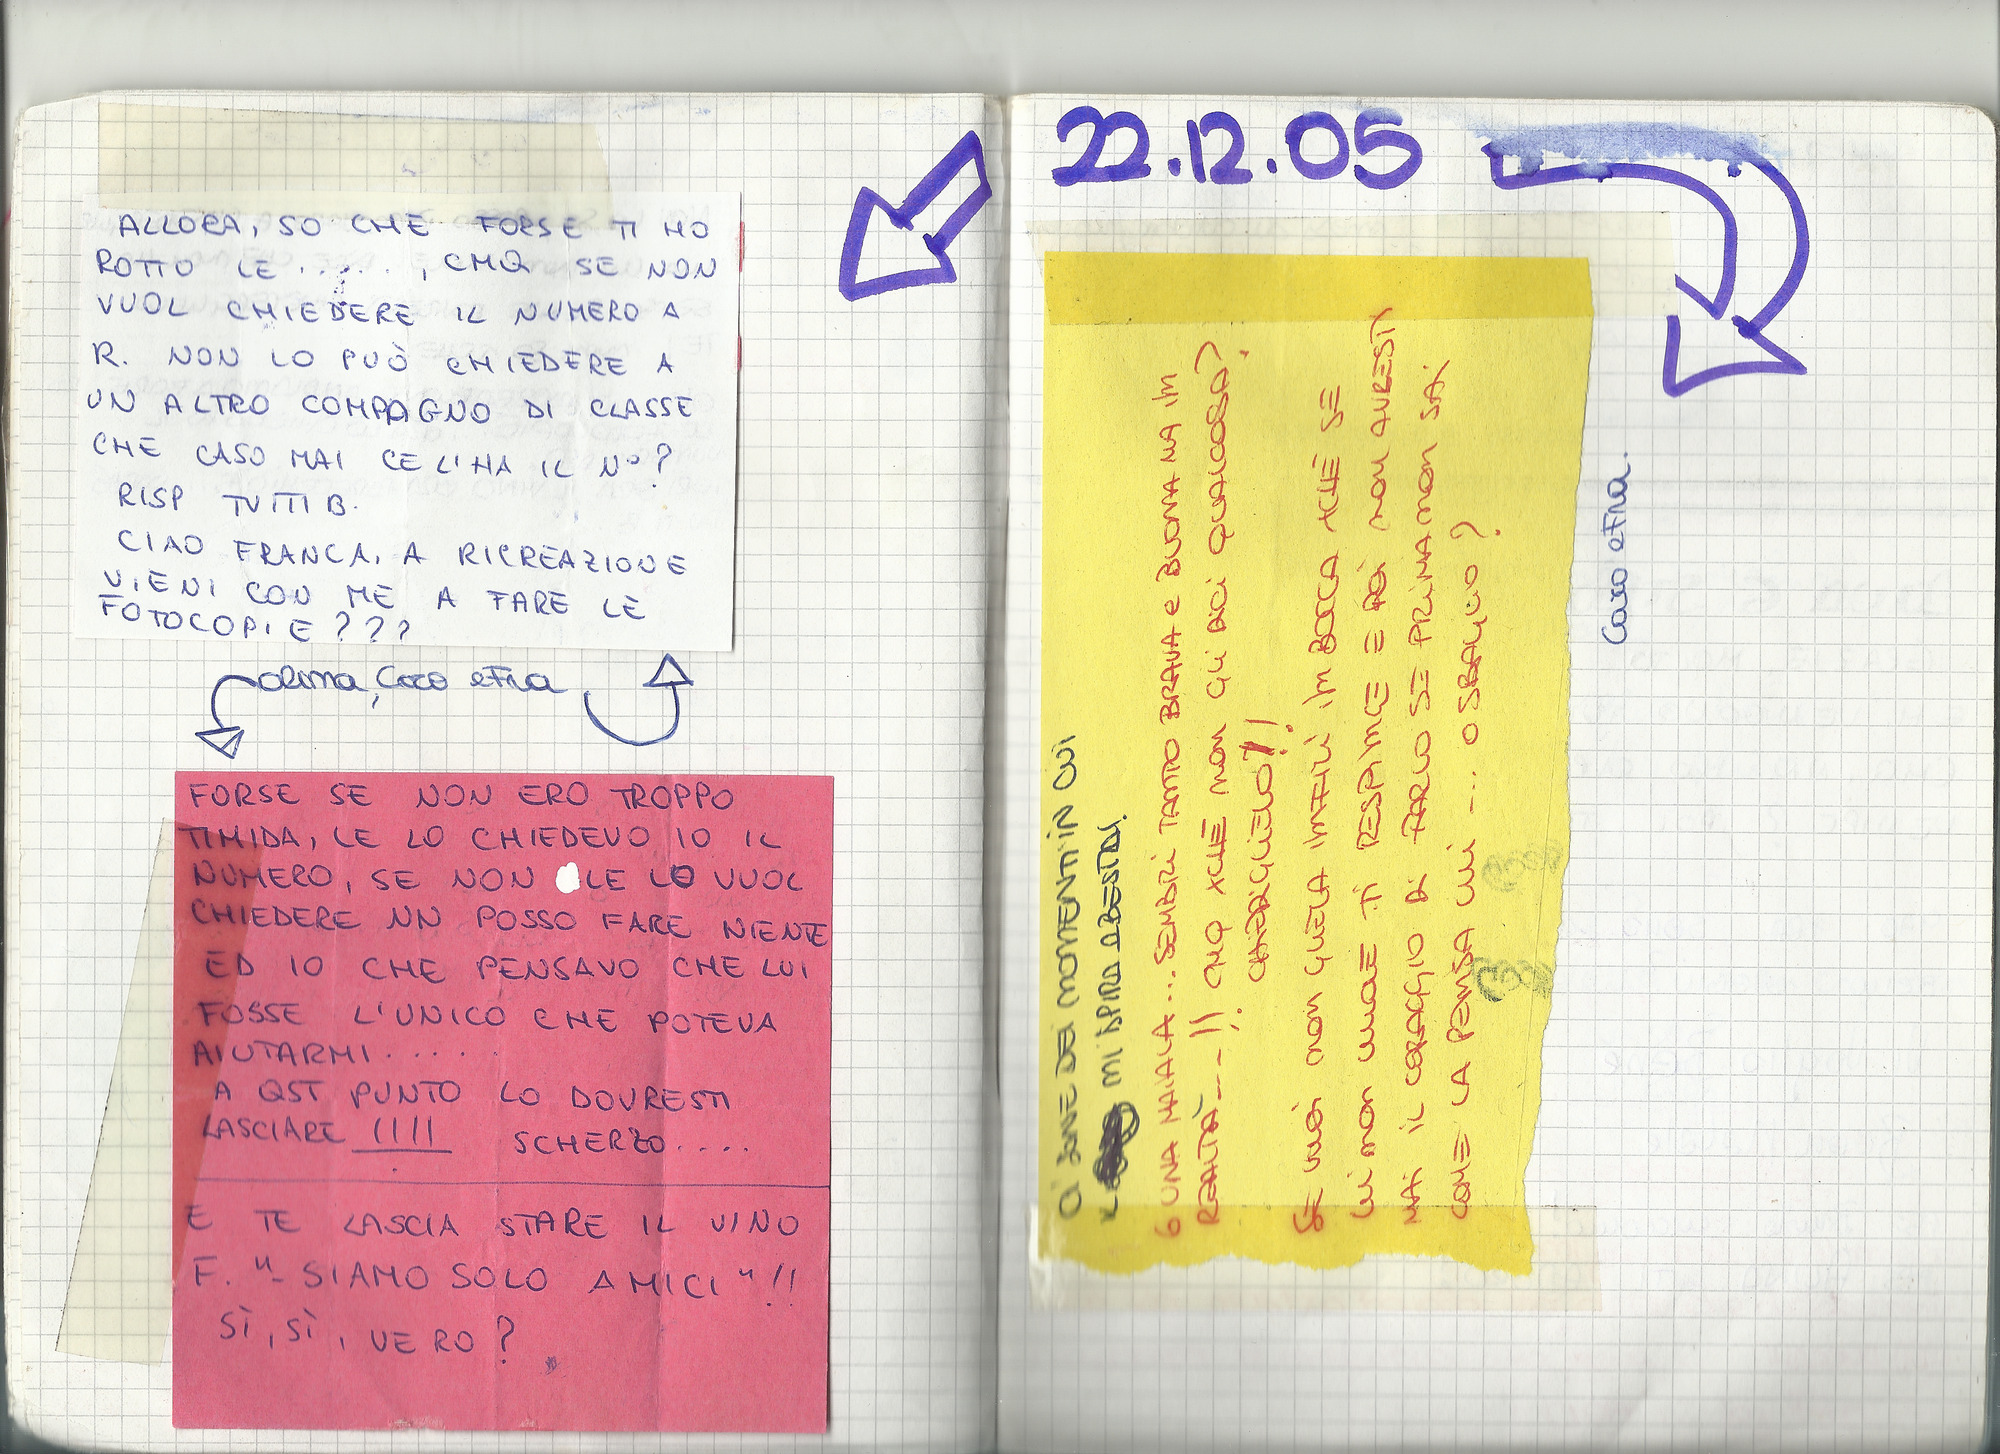 ALLORA, SO CHE FORSE TI HO
ROTTO LE ......, CMQ SE NON
VUOL CHIEDERE IL NUMERO A
R. NON LO PUÒ CHIEDERE A
UN ALTRO COMPAGNO DI CLASSE
CHE CASO MAI CE L'HA IL N°?
RISP TUTTI B.
CIAO FRANCA, A RICREAZIONE
VIENI CON ME A FARE LE
FOTOCOPIE???
Coco e Fra
FORSE SE NON ERO TROPPO
TIMIDA, LE LO CHIEDEVO IO IL
NUMERO, SE NON LE LO VUOL
CHIEDERE NN POSSO FARE NIENTE
ED IO CHE PENSAVO CHE LUI
FOSSE L'UNICO CHE POTEVA
AIUTARMI.....
A QST PUNTO LO DOVRESTI
LASCIARE !!!! SCHERZO....
E TE LASCIA STARE IL VINO
F. "- SIAMO SOLO AMICI"!!
SÌ, SÌ, VERO?
22.12.05
CI SONO DEI MOMENTI IN CUI
MI SPIRA A BESTIA!
6 UNA MAIALA... SEMBRI TANTO BRAVA E BUONA MA IN
REALTÀ---!! CMQ XCHÈ NON GLI DICI QUALCOSA?
CHIEDIGLIELO!!
SE VUOI NON GUELA INFILI IN BOCCA XCHÈ SE
LUI NON VUOLE TI RESPINGE E POI NON AVRESTI
MAI IL CORAGGIO DI FARLO SE PRIMA NON SAI
COME LA PENSA LUI -... O SBAGLIO?
Caro e Fra.